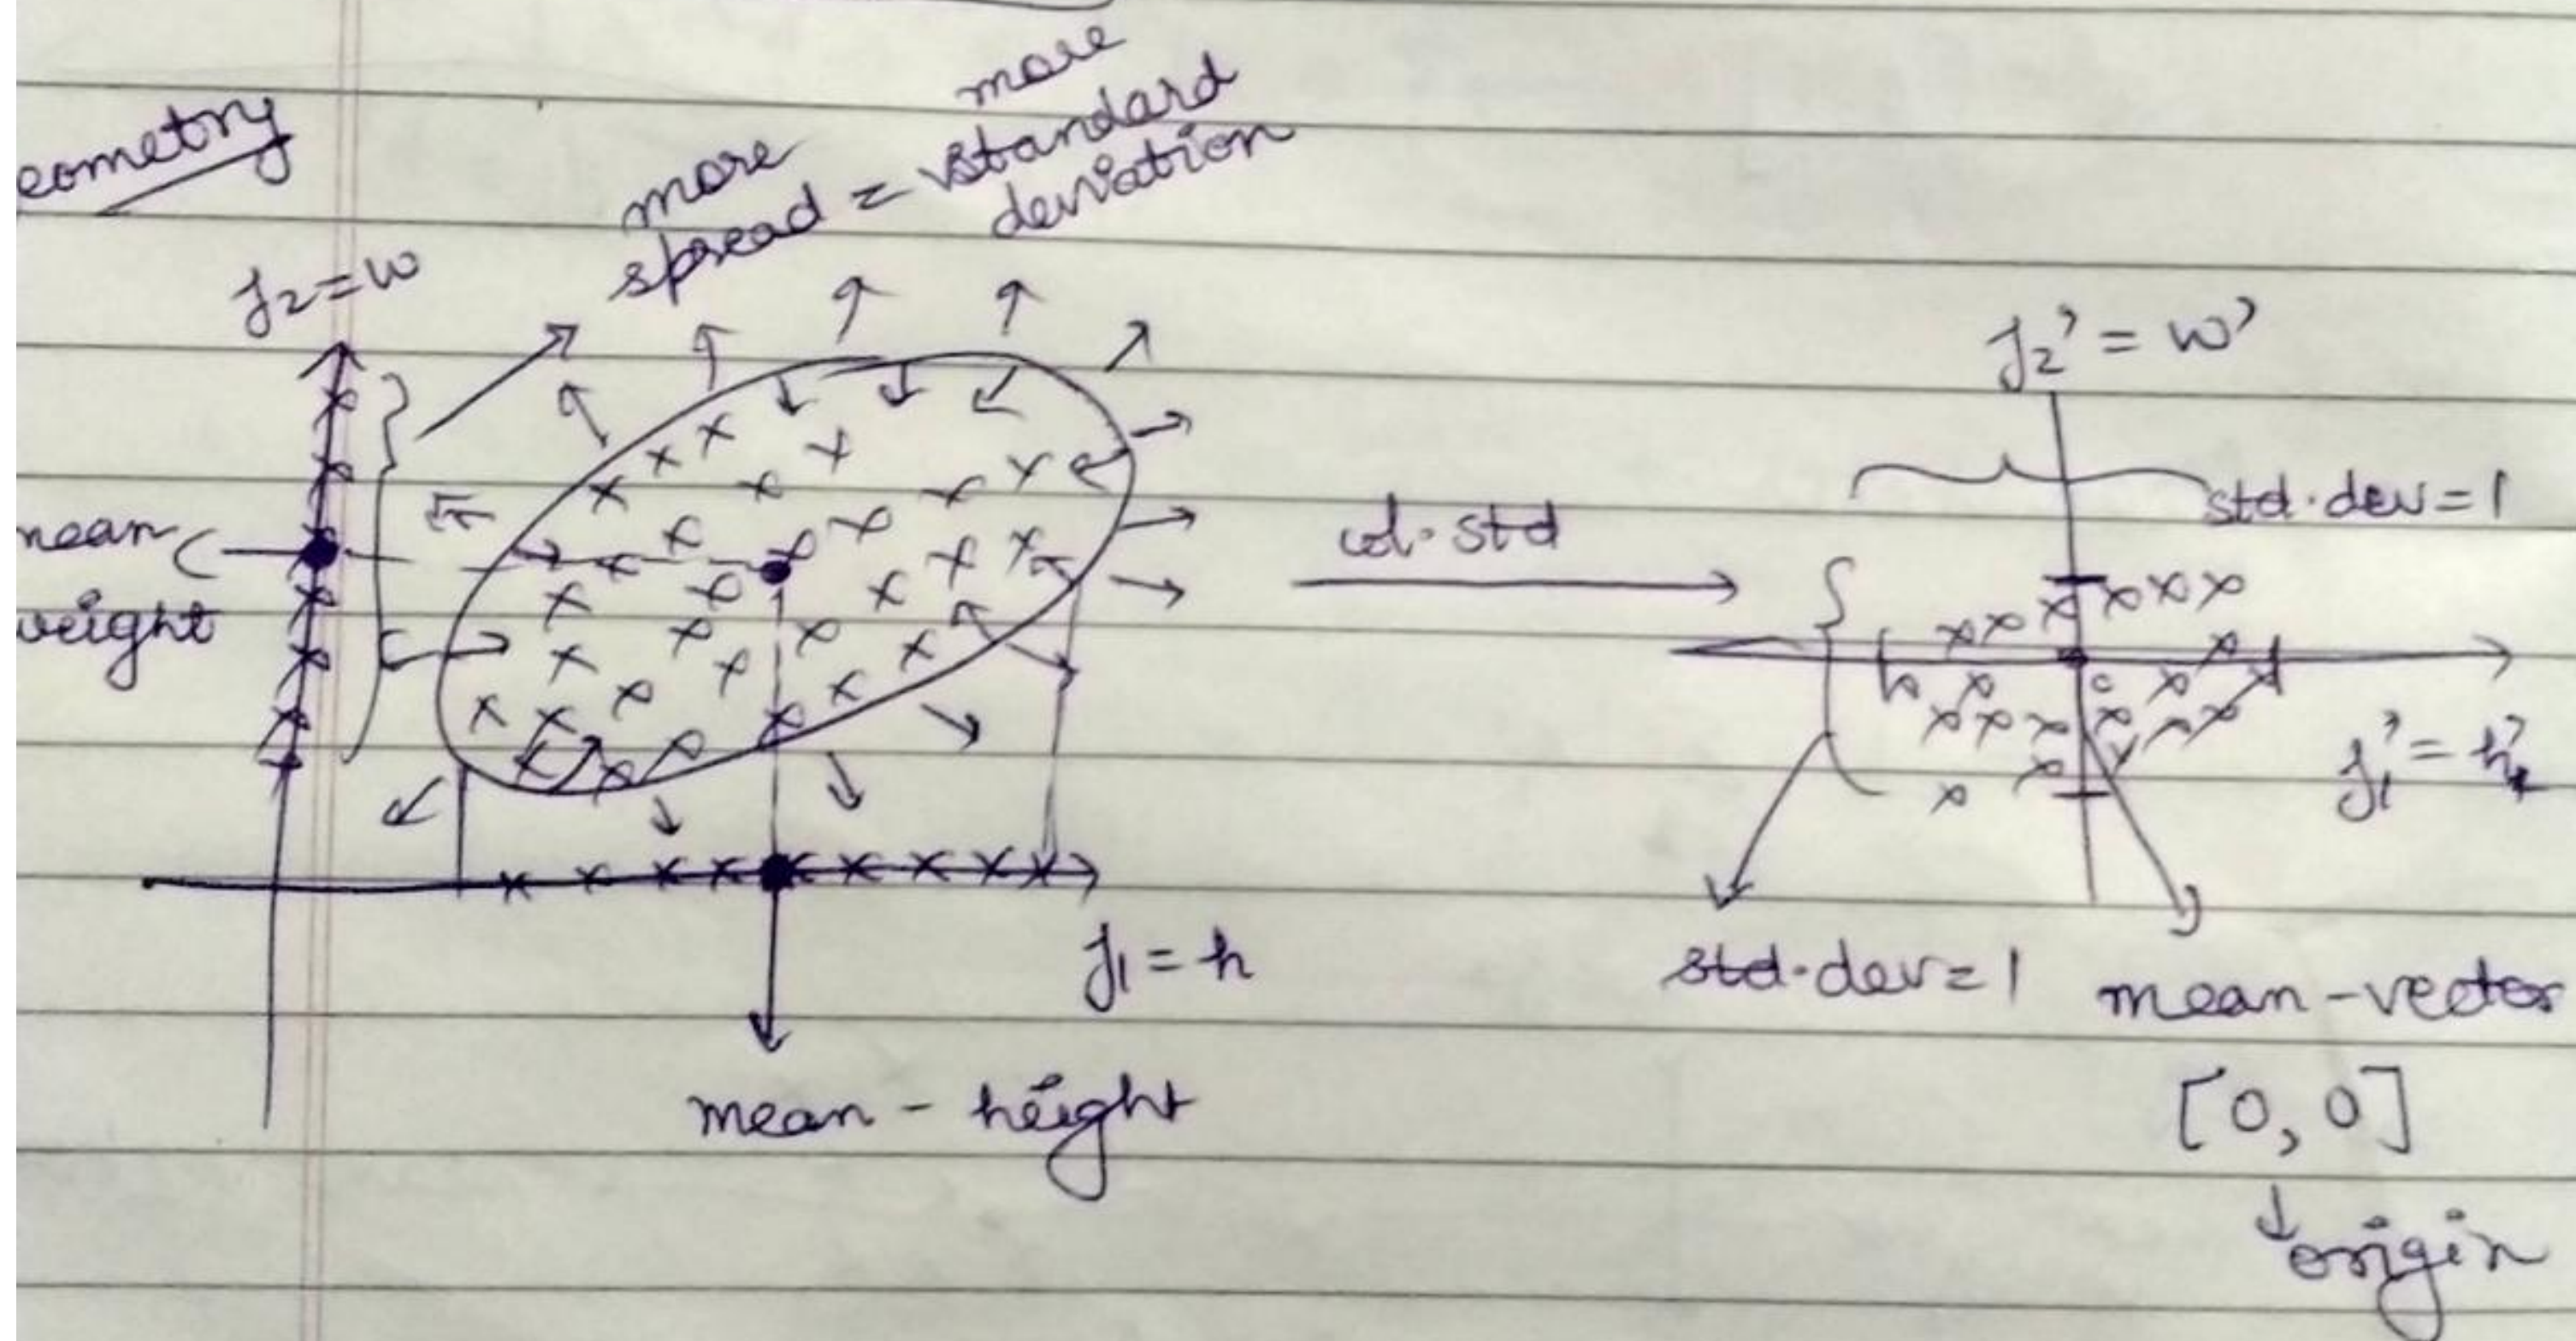 eometry
more
spread = more
standard
deviation
f₂ = w
mean
weight
f₁ = h
mean - height
col. std
f₂' = w'
std. dev = 1
f₁' = h'
std. dev = 1
mean - vector
[0, 0]
origin